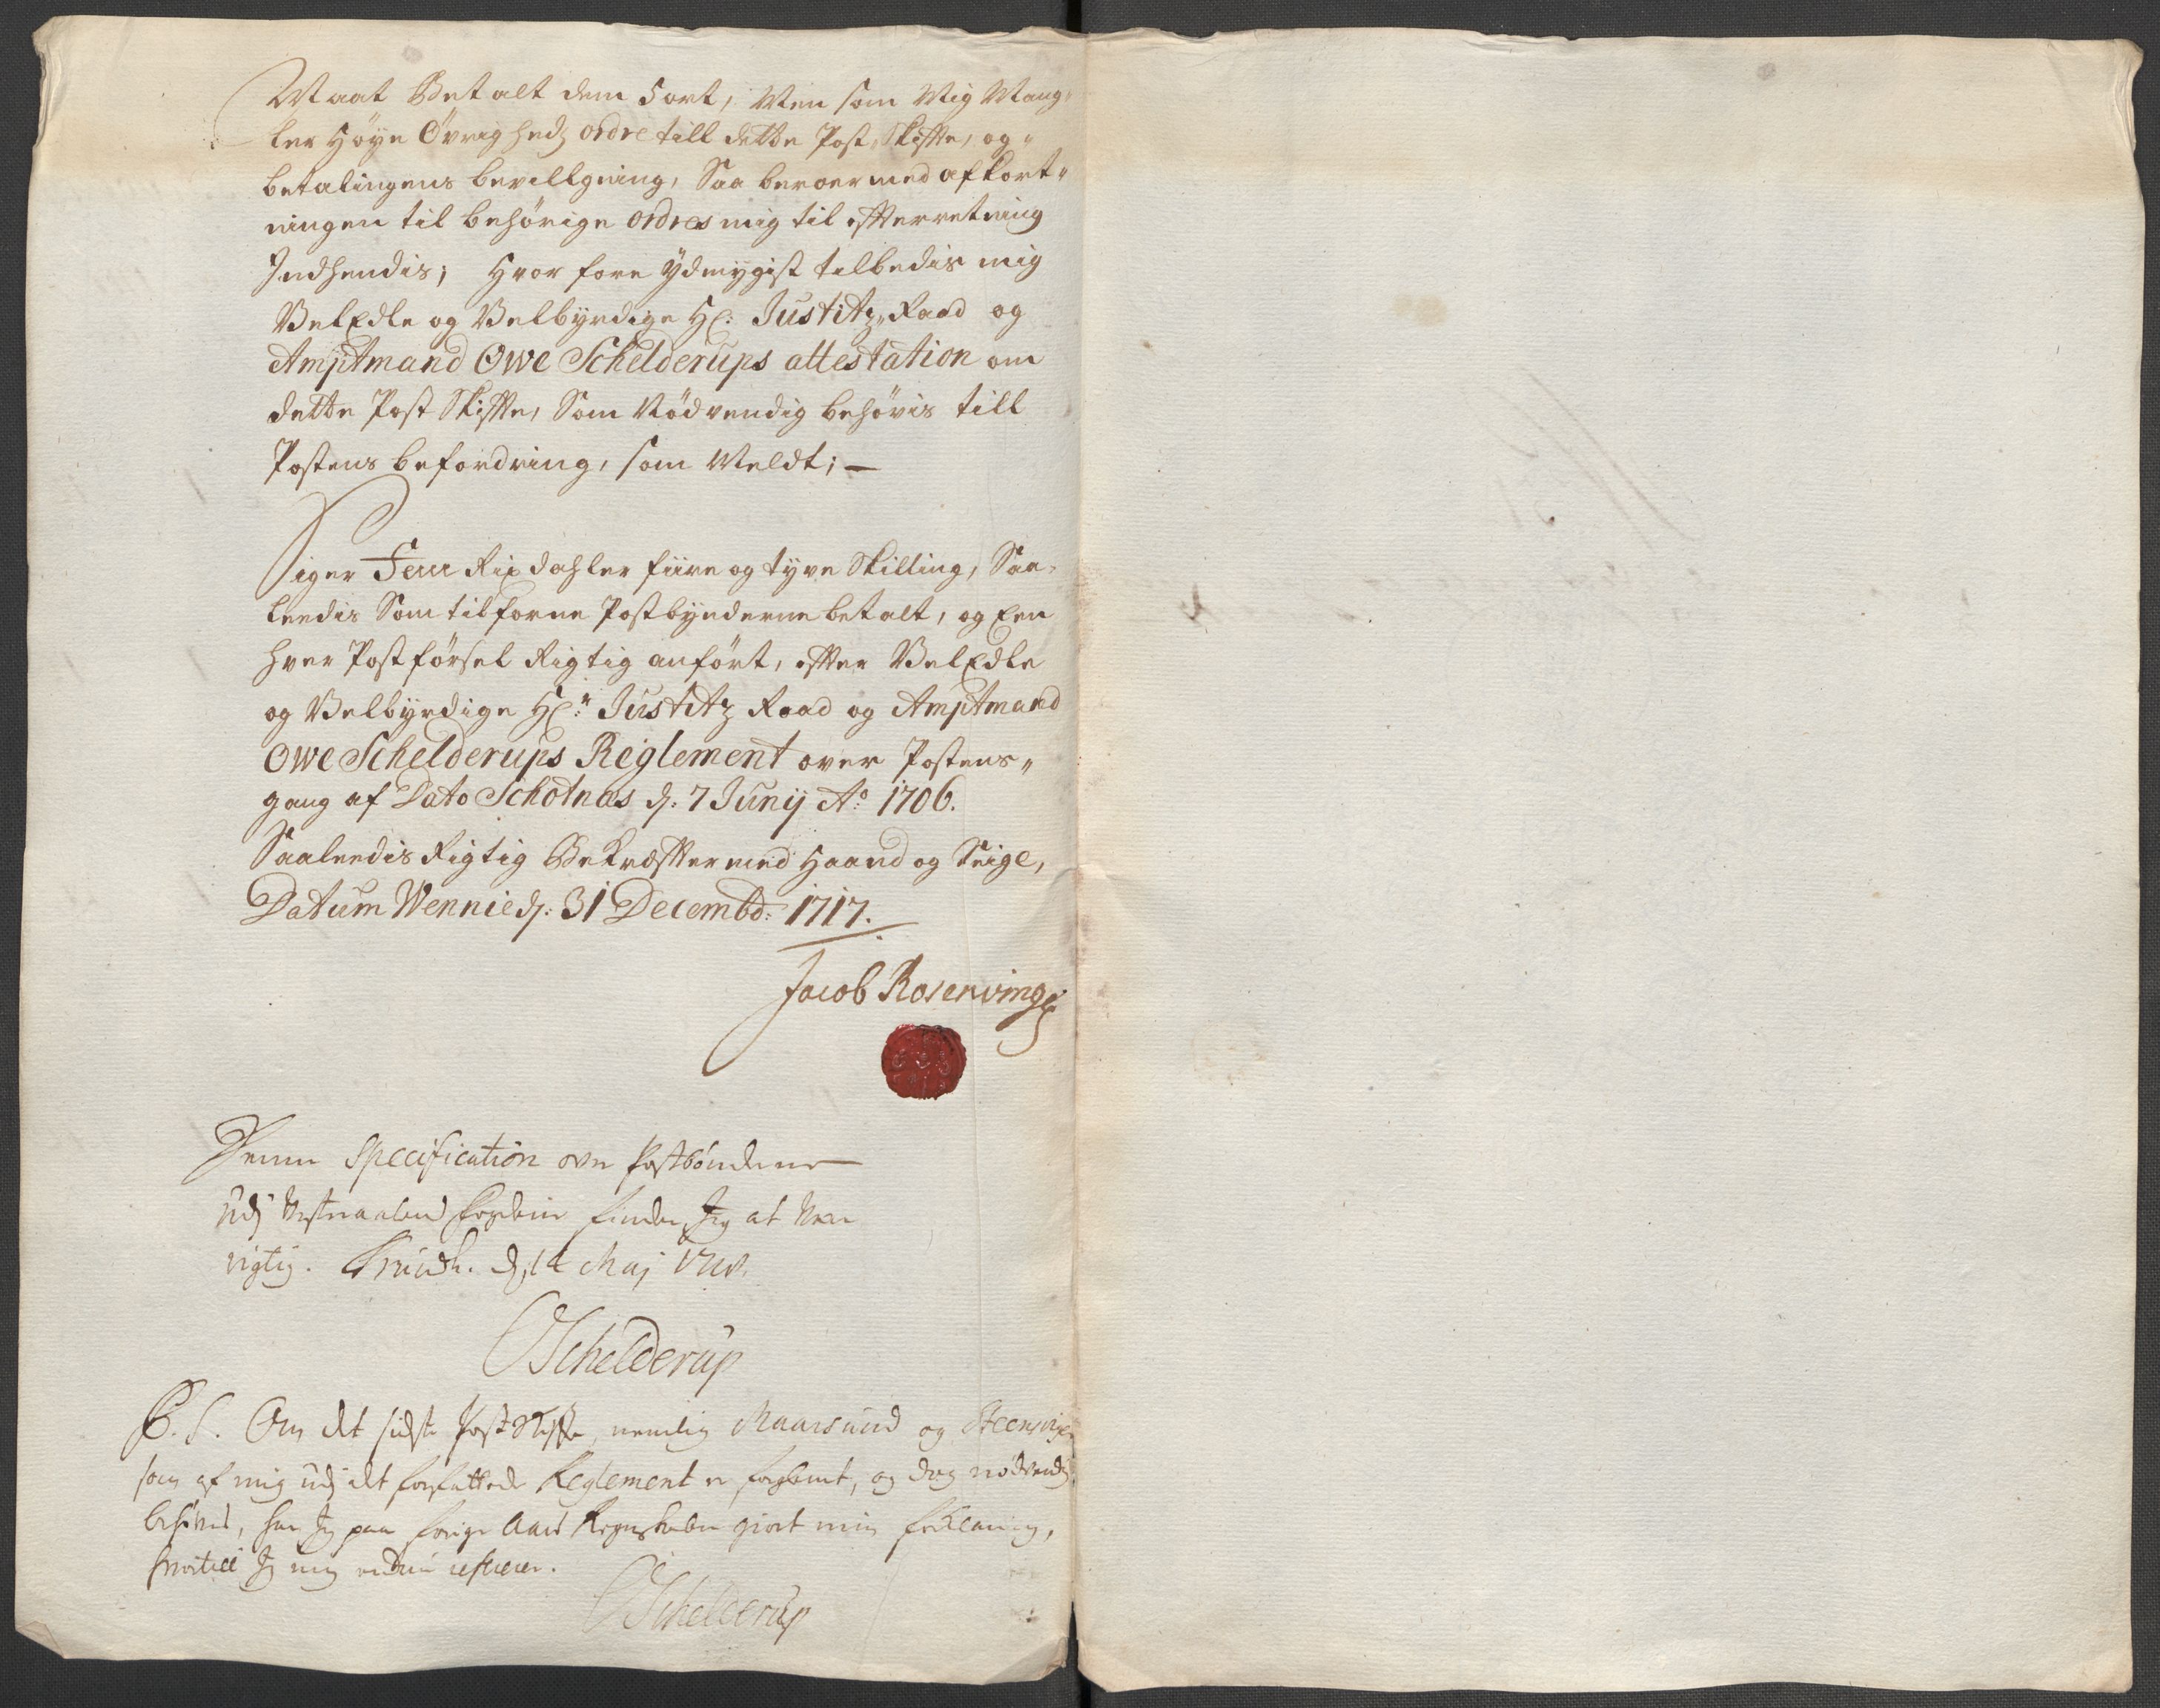 Maat Betalt dem 5 ort, Men som Mig Mang„
ler Høye Øvrigheds ordre till dette Post Skiffte, og„
betalingens bevillgning, Saa beroer med afkort„
ningen til behørige ordres mig til effterretning
Indhendis; Hvor fore ydmygist tilbedis mig
VelEdle og Velbyrdige Hr: Justitz„Raad og
Amptmand Owe Schelderups attestation om
dette Post Skiffte, Som Nødvendig behøvis till
Postens befordring, som Meldt; —
Siger Fem Rixdahler fiire og tyve Skilling, Saa„
leedis Som tilforne Postbynderne betalt, og Een
hver Postførsel Rigtig anført, effter VelEdle
og Velbyrdige Hr: Justitz Raad og Amptmand
Owe Schelderups Reglement over Postens„
gang af Dato Schotnæs d: 7 Junij Ao 1706.
Saaleedis Rigtig Bekræffter med Haand og Seigl,
Datum Wennie d: 31 Decembr: 1717.
Jacob Rosenvinge
Denne Specification over Postbønderne
udj Vesteraalens fogderie finder Jeg at være
rigtig. d: 14 Maj
OSchelderup
P.S. Om det sidste Post Skiffte, nemlig Maarsund og Steensvigen
som af mig udj det forfattede Reglement er forglemt, og dog nødvendig
behøves, har Jeg paa forige Aars Regnskaber giort min forklaring,
hvortill Jeg mig endnu refererer.
OSchelderup